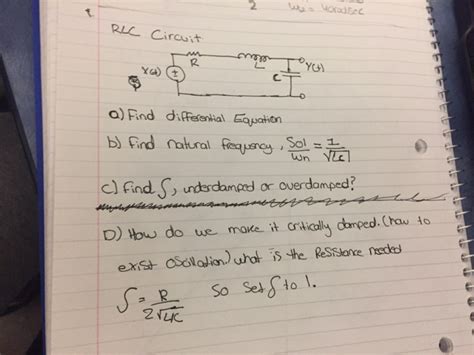 2 ω₂ = 40rad/sec
RLC Circuit
R L Y(t)
X(t) + C
a) Find differential Equation
b) find natural frequency, Sol/Wn = 1/√LC
c) Find ζ, underdamped or overdamped?
D) How do we make it critically damped. (how to
exist oscillation) what is the Resistance needed
ζ = R/2√L/C So Set ζ to 1.